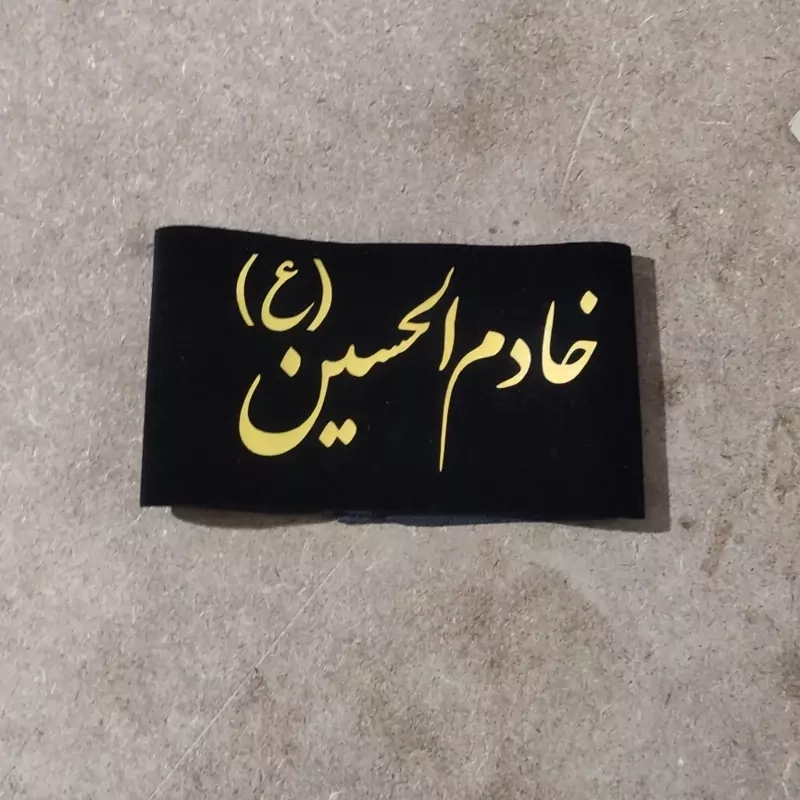 خادم الحسین (ع)